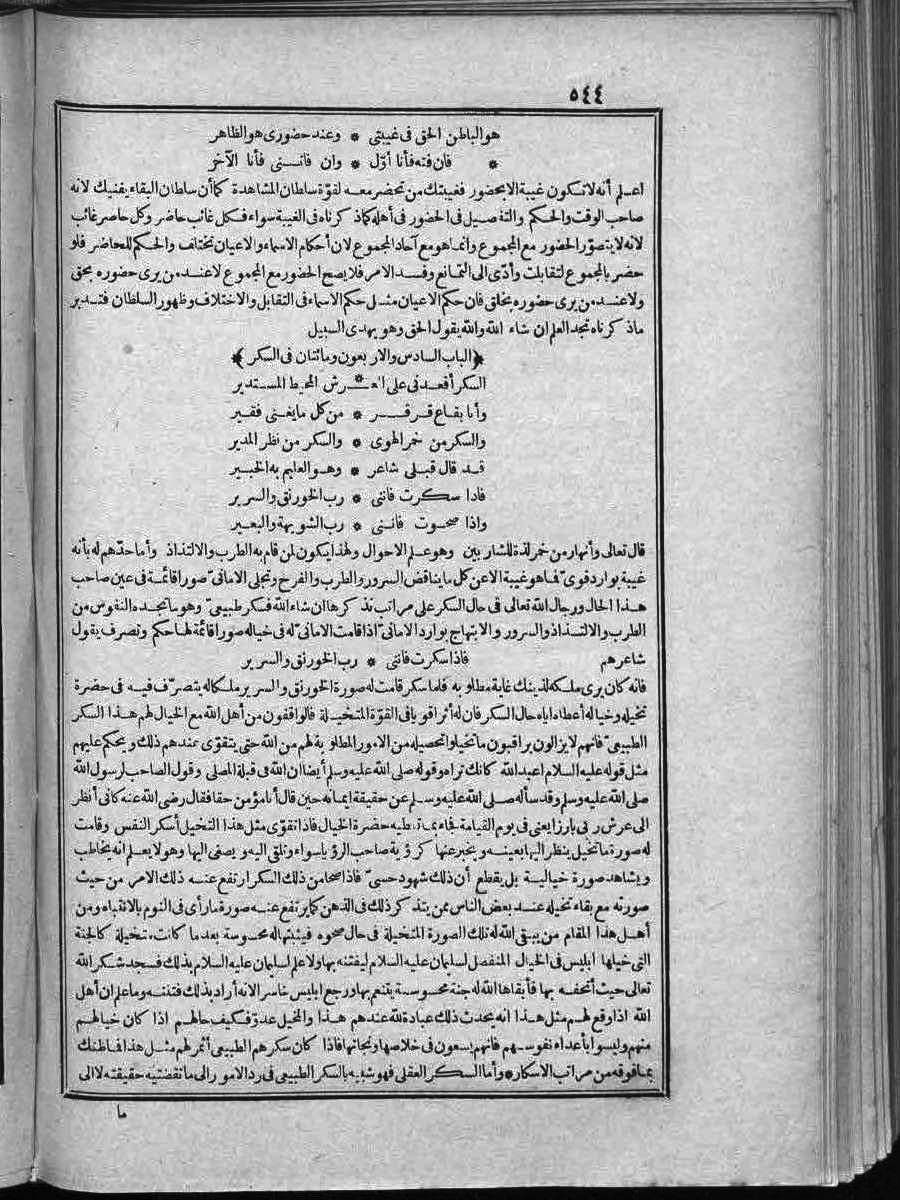 ٥٤٤
هو الباطن الحق في غيبتي * وعند حضوري هو الظاهر
* فان فته فأنا أوّل * وان فاتني فأنا الآخر
اعلم أنه لا تكون غيبة الا بحضور فغيبتك من تحضر معه لقوّة سلطان المشاهدة كما أن سلطان البقاء يفنيك لانه
صاحب الوقت والحكم والتفصيل في الحضور في أهله كما ذكرناه في الغيبة سواء فكل غائب حاضر وكل حاضر غائب
لانه لا يتصوّر الحضور مع المجموع وانما هو مع آحاد المجموع لان أحكام الاسماء والاعيان تختلف والحكم للحاضر فلو
حضر بالمجموع لتقابلت وأدّى الى التمانع وفسد الامر فلا يصح الحضور مع المجموع لا عند من يرى حضوره بحق
ولا عند من يرى حضوره بخلق فان حكم الاعيان مثل حكم الاسماء في التقابل والاختلاف وظهور السلطان فتدبر
ماذكرناه تجد العلم ان شاء الله والله يقول الحق وهو يهدي السبيل
﴿الباب السادس والاربعون ومائتان في السكر﴾
السكر أقعدني على العـ * ـرش المحيط المستدير
وأنا بقاع قرقر * من كل ما يغني فقير
والسكر من خمر الهوى * والسكر من نظر المدير
قد قال قبلي شاعر * وهو العليم به الخبير
فاذا سكرت فانني * رب الخورنق والسرير
واذا صحوت فانني * رب الشويهة والبعير
قال تعالى وأنهار من خمر لذة للشاربين وهو علم الاحوال ولهذا يكون لمن قام به الطرب والالتذاذ وأما حدّهم له بأنه
غيبة بوارد قوي فما هو غيبة الا عن كل ما يناقض السرور والطرب والفرح وتجلى الاماني صورا قائمة في عين صاحب
هذا الحال ورجال الله تعالى في حال السكر على مراتب نذكرها ان شاء الله فسكر طبيعي وهو ما تجده النفوس من
الطرب والالتذاذ والسرور والابتهاج بوارد الاماني اذا قامت الاماني له في خياله صورا قائمة لها حكم وتصرف يقول
شاعرهم فاذا سكرت فانني * رب الخورنق والسرير
فانه كان يرى ملكه لذينك غاية مطلوبه فلما سكر قامت له صورة الخورنق والسرير ملكا له يتصرّف فيه في حضرة
تخيله وخياله أعطاه اياه حال السكر فان له أثرا قويا في القوّة المتخيلة فالواقفون من أهل الله مع الخيال لهم هذا السكر
الطبيعي فانهم لا يزالون يراقبون ما تخيلوا تحصيله من الامور المطلوبة لهم من الله حتى يتقوّى عندهم ذلك ويحكم عليهم
مثل قوله عليه السلام اعبد الله كانك تراه وقوله صلى الله عليه وسلم أيضا ان الله في قبلة المصلي وقول الصاحب لرسول الله
صلى الله عليه وسلم وقد سأله صلى الله عليه وسلم عن حقيقة ايمانه حين قال أنا مؤمن حقا فقال رضي الله عنه كاني أنظر
الى عرش ربي بارزا يعني في يوم القيامة فجاء بما تعطيه حضرة الخيال فاذا تقوّى مثل هذا التخيل أسكر النفس وقامت
له صورة ما تخيل ينظر اليها بعينه ويخبر عنها كرؤية صاحب الرؤيا سواء وتلقي اليه ويصغي اليها وهو لا يعلم انه يخاطب
ويشاهد صورة خيالية بل يقطع أن ذلك شهود حسيّ فاذا صحا من ذلك السكر ارتفع عنه ذلك الامر من حيث
صورته مع بقاء تخيله عند بعض الناس ممن يتذكر ذلك في الذهن كما يرتفع عنه صورة ما رأى في النوم بالانتباه ومن
أهل هذا المقام من يبقي الله له تلك الصورة المتخيلة في حال صحوه فيثبتها له محسوسة بعد ما كانت متخيلة كالجنة
التي خيلها ابليس في الخيال المنفصل لسليمان عليه السلام ليفتنه بها ولا علم لسليمان عليه السلام بذلك فسجد شكر الله
تعالى حيث أتحفه بها فأبقاها الله له جنة محسوسة يتنعم بها ورجع ابليس خاسرا لانه أراد بذلك فتنته وما علم ان أهل
الله اذا وقع لهم مثل هذا انه يحدث ذلك عبادة لله عندهم هذا والمخيل عدوّ فكيف حالهم اذا كان خيالهم
منهم وليسوا بأعداء نفوسهم فانهم يسعون في خلاصها ونجاتها فاذا كان سكرهم الطبيعي أثمر لهم مثل هذا فما ظنك
بما فوقه من مراتب الاسكار * وأما السكر العقلي فهو شبيه بالسكر الطبيعي في رد الامور الى ما تقتضيه حقيقته لا الى
ما